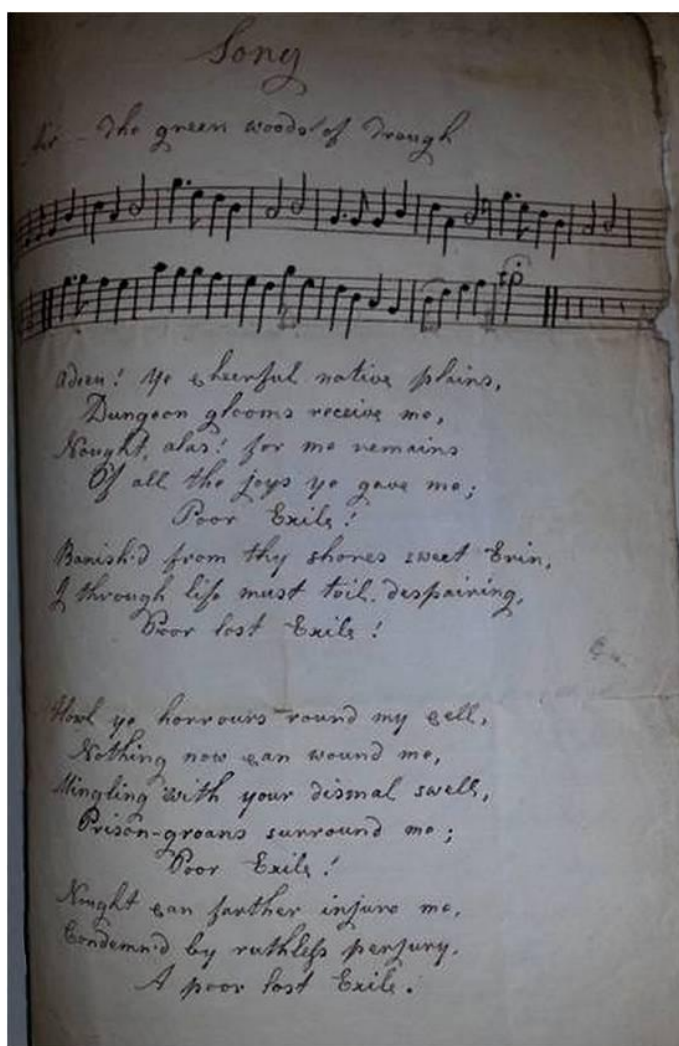 Song
Air - The green woods of Trough
Adieu! ye cheerful native plains,
Dungeon glooms receive me,
Nought, alas! for me remains
Of all the joys ye gave me;
Poor Exile!
Banish'd from thy shores sweet Erin,
I through life must toil, despairing,
Poor lost Exile!
Howl ye horrours round my cell,
Nothing now can wound me,
Mingling with your dismal swell,
Prison-groans surround me;
Poor Exile!
Nought can farther injure me,
Condemn'd by ruthless perjury,
A poor lost Exile.